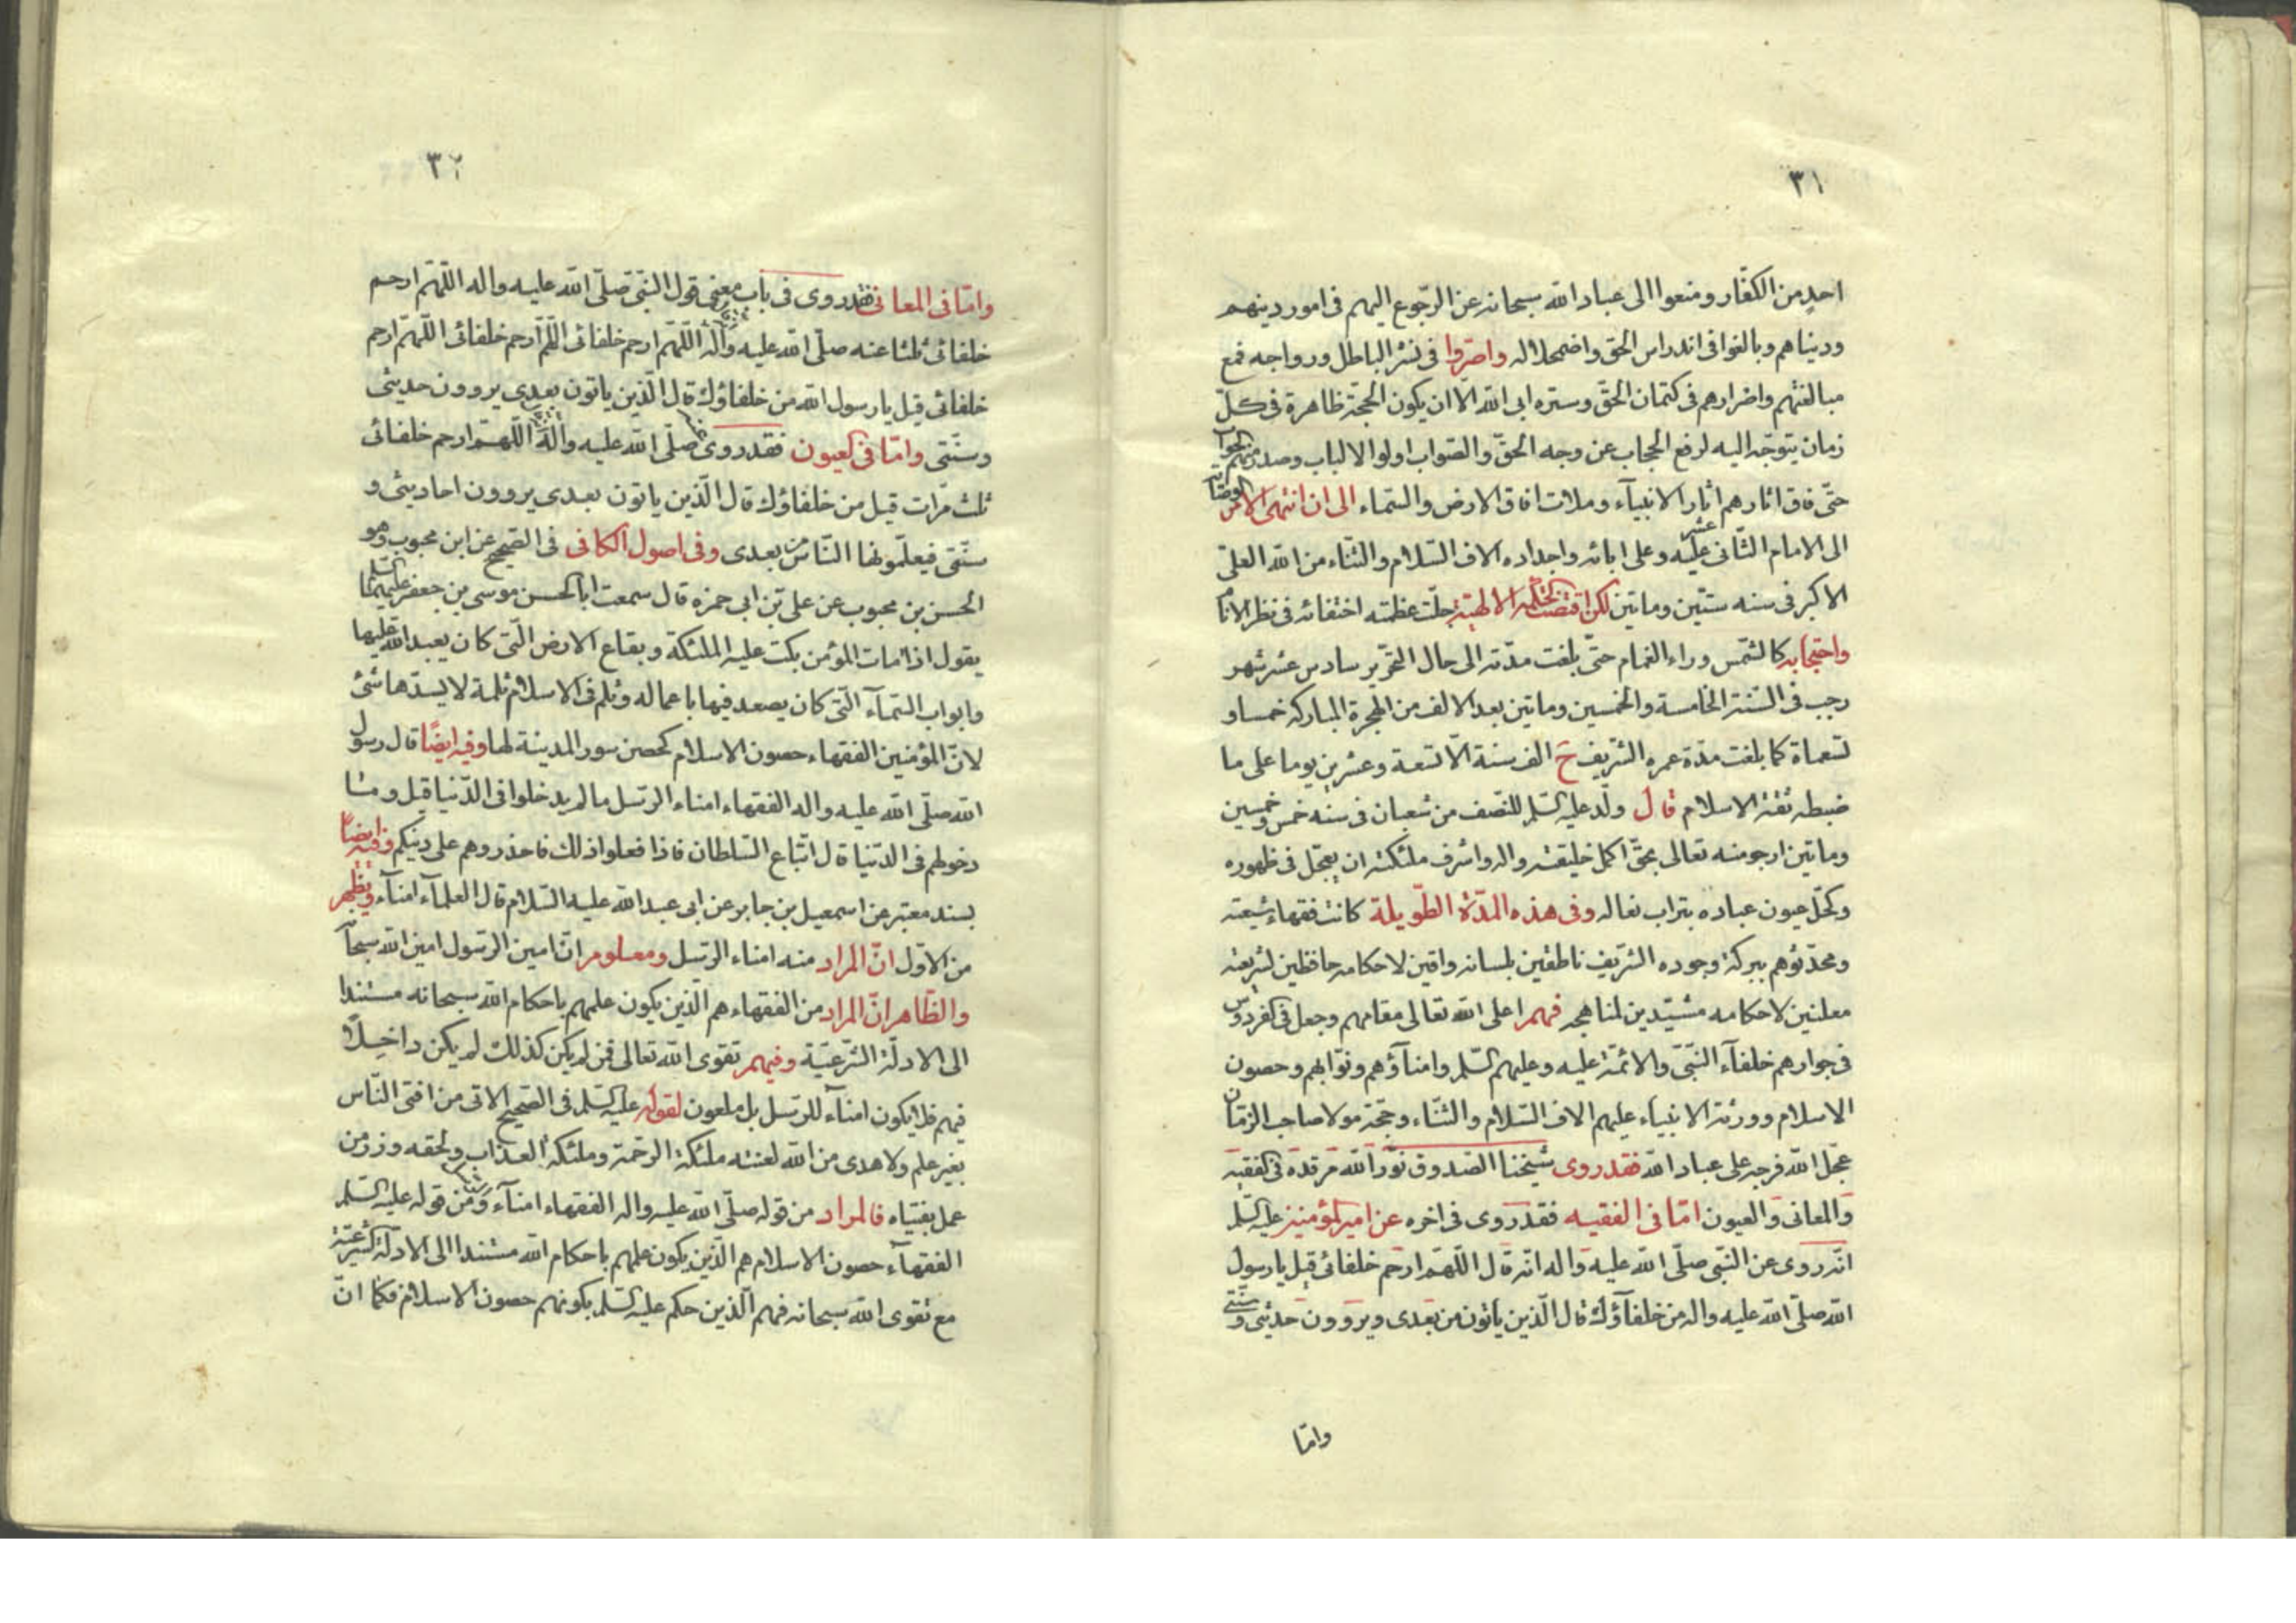 ٣١
احدٍ من الكفّار ومنعوا الى عباد الله سبحانه عن الرّجوع اليهم فى امور دينهم
ودنياهم وبالغوا فى اندراس الحق واضمحلاله واصرّوا فى نشر الباطل ورواجه فمع
مبالغتهم واضرارهم فى كتمان الحقّ وستره ابى الله الّا ان يكون الحجّة ظاهرة فى كلّ
زمان يتوجّه اليه لرفع الحجاب عن وجه الحقّ والصّواب اولوا الالباب وصدر منهم
حتّى فاق اثارهم اثار الانبيآء وملات افاق الارض والسّماء الى ان انتهى الامر
الى الامام الثّانى عشر عليه وعلى ابائه واجداده الاف السّلام والثّناء من الله العلىّ
الاكبر فى سنه ستّين وماتين لكن اقتضت الحكمة الالهيّة جلّت عظمته اختفائه فى نظر الانام
واحتجابه كالشّمس وراء الغمام حتّى بلغت مدّته الى حال التّحرير سادس عشر شهر
رجب فى السّنة الخامسة والخمسين وماتين بعد الالف من الهجرة المباركه خمسا و
تسعماة كما بلغت مدّة عمره الشّريف ح الف سنة الّا تسعة وعشرين يوما على ما
ضبطه ثقة الاسلام قال ولد عليه السّلم للنّصف من شعبان فى سنه خمس وخمسين
وماتين ارجو منه تعالى بحقّ اكمل خليقته واله واشرف ملئكته ان يعجّل فى ظهوره
وكحّل عيون عباده بتراب نعاله وفى هذه المدّة الطّويلة كانت فقهاء شيعته
ومحدّثوهم ببركة وجوده الشّريف ناطقين بلسانه واقين لاحكامه حافظين لشريعته
معلنين لاحكامه مشيّدين لمناهجه فهم اعلى الله تعالى مقامهم وجعل فى الفردوس
فى جوارهم خلفآء النّبىّ والائمّة عليه وعليهم السّلم وامنآؤهم ونوّابهم وحصون
الاسلام وورثة الانبياء عليهم الاف السّلام والثّناء وحجّة مولا صاحب الزمان
عجّل الله فرجه على عباد الله فقد روى شيخنا الصّدوق نوّر الله مرقده فى الفقيه
والمعانى والعيون امّا فى الفقيه فقد روى فى اخره عن امير المؤمنين عليه السّلم
انّه روى عن النّبى صلّى الله عليه واله انّه قال اللّهمّ ارحم خلفائى قيل يا رسول
الله صلّى الله عليه واله من خلفآؤك قال الّذين ياتون من بعدى ويروون حديثى وسنّتى
وامّا
٣٢
وامّا فى المعانى فقد روى فى باب معنى قول النّبىّ صلّى الله عليه واله اللّهمّ ارحم
خلفائى ثلثا عنه صلّى الله عليه وآله اللّهمّ ارحم خلفائى اللّهم ارحم خلفائى اللّهمّ ارحم
خلفائى قيل يا رسول الله من خلفاؤك قال الّذين ياتون بعدى يروون حديثى
وسنّتى وامّا فى العيون فقد روى صلّى الله عليه وآله اللّهمّ ارحم خلفائى
ثلث مرّات قيل من خلفاؤك قال الّذين ياتون بعدى يروون احاديثى و
سنّتى فيعلّمونها النّاس من بعدى وفى اصول الكافى فى الصّحيح عن ابن محبوب وهو
الحسن بن محبوب عن على بن ابى حمزه قال سمعت ابا الحسن موسى بن جعفر عليهما السلم
يقول اذا مات المؤمن بكت عليه الملئكة وبقاع الارض الّتى كان يعبد الله عليها
وابواب السّمآء الّتى كان يصعد فيها باعماله وثلم فى الاسلام ثلمة لا يسدّها شئ
لانّ المؤمنين الفقهاء حصون الاسلام كحصن سور المدينة لها وفيه ايضًا قال رسول
الله صلّى الله عليه واله الفقهاء امناء الرّسل ما لم يدخلوا فى الدّنيا قيل وما
دخولهم فى الدّنيا قال اتّباع السّلطان فاذا فعلوا ذلك فاحذروهم على دينكم وفيه ايضًا
بسند معتبر عن اسمعيل بن جابر عن ابى عبد الله عليه السّلام قال العلمآء امنآء ويظهر
من الاوّل انّ المراد منه امناء الرّسل ومعلوم انّ امين الرّسول امين الله سبحا
والظّاهر انّ المراد من الفقهاء هم الّذين يكون علمهم باحكام الله سبحانه مستندا
الى الادلّة الشّرعيّة وفيهم تقوى الله تعالى فمن لم يكن كذلك لم يكن داخلًا
فيهم فلا يكون امنآء للرّسل بل ملعون لقوله عليه السّلم فى الصّحيح الاتى من افتى النّاس
بغير علم ولا هدى من الله لعنته ملئكة الرّحمة وملئكة العذاب ولحقه وزر من
عمل بفتياه فالمراد من قوله صلّى الله عليه واله الفقهاء امنآء ومن قوله عليه السّلم
الفقهآء حصون الاسلام هم الّذين يكون علمهم باحكام الله مستندا الى الادلّة الشّرعيّة
مع تقوى الله سبحانه فهم الّذين حكم عليه السّلم بكونهم حصون الاسلام فكما انّ